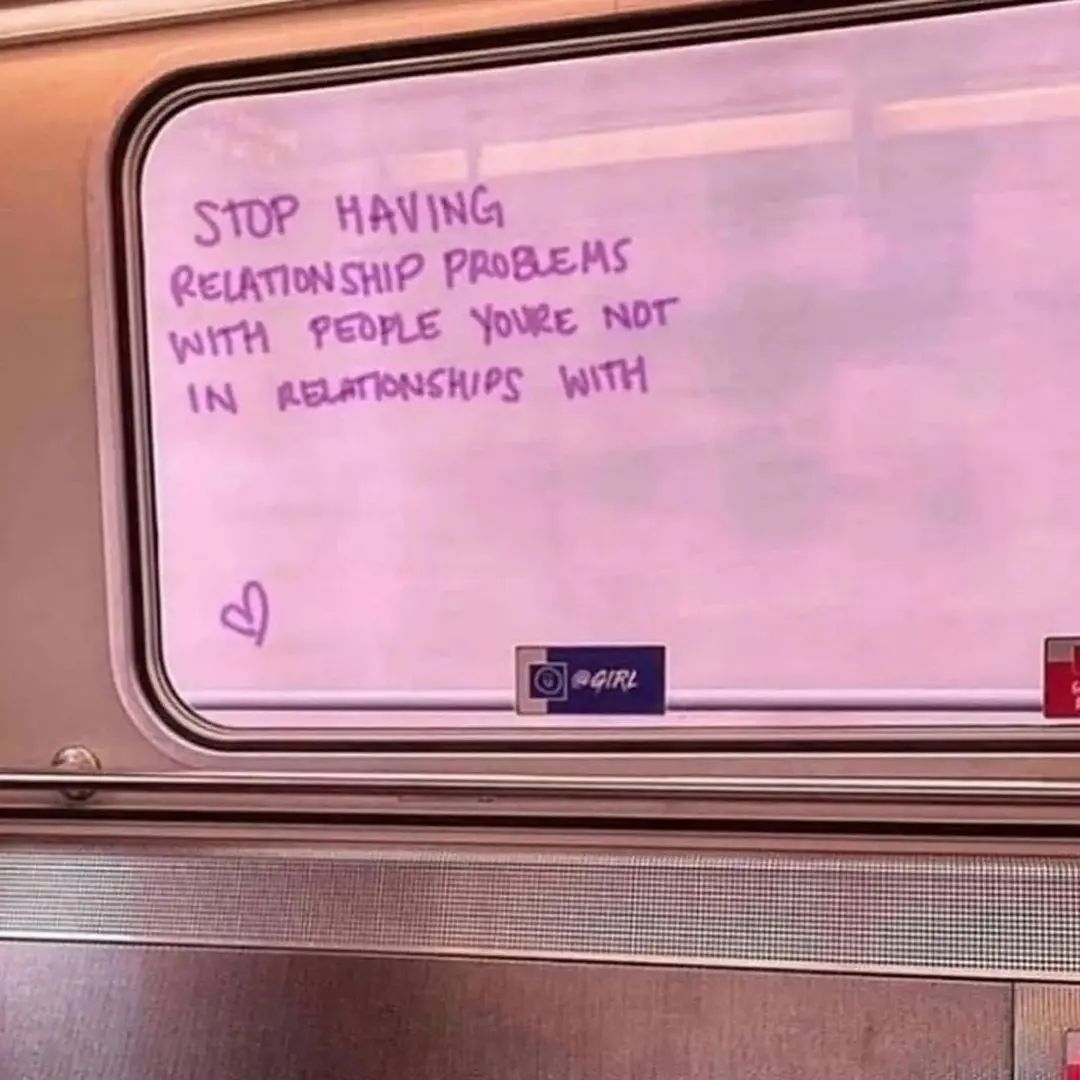 STOP HAVING
RELATIONSHIP PROBLEMS
WITH PEOPLE YOURE NOT
IN RELATIONSHIPS WITH
@GIRL